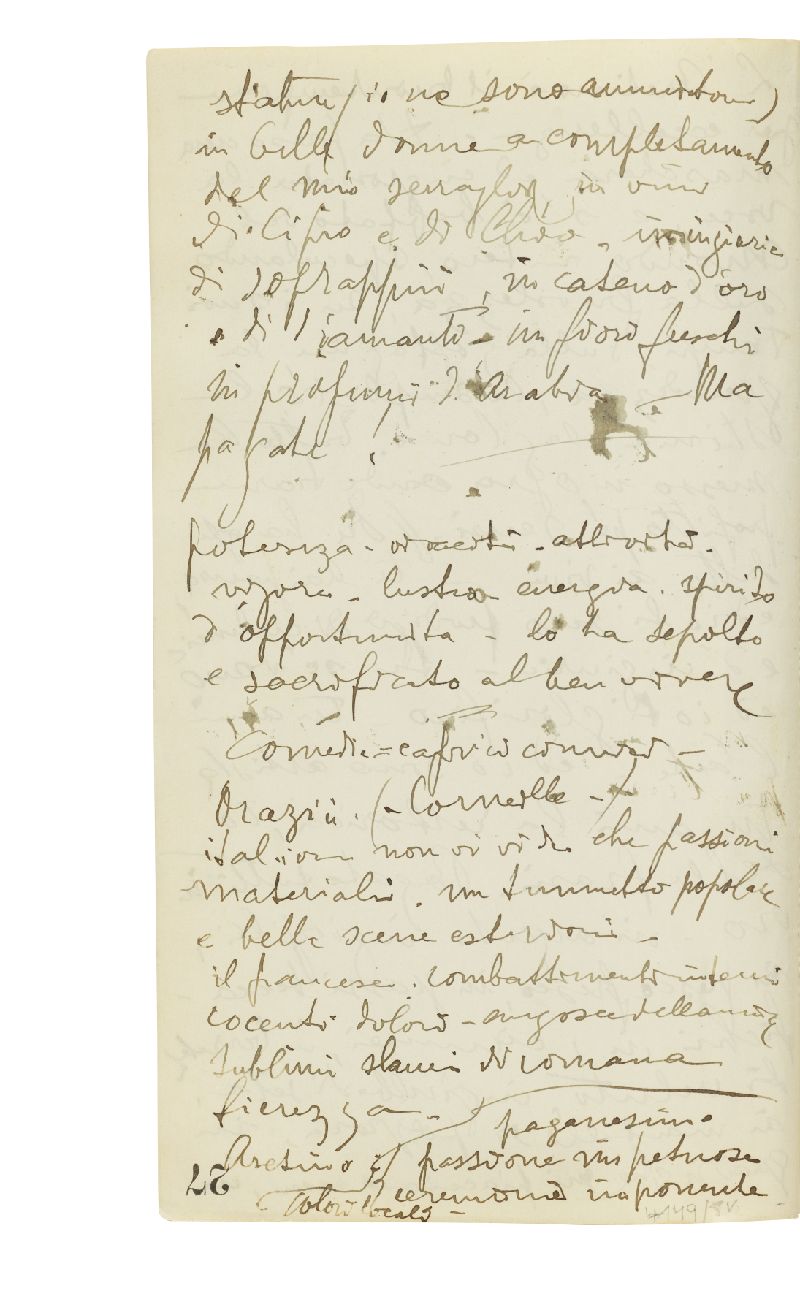 statue (io ne sono ammiratore)
in belle donne a completamento
del mio serraglio, in vino
di Cipro e di Chio -
di in catene d'oro
e di diamanti - in fiori freschi
in profumi d'Arabia - Ma
pagate!
potenza - attività -
vigore - lustro energia - spirito
d'opportunità - lo ha sepolto
e sacrificato al ben vivere
Comédie = caprici comici -
Orazii. (- Corneille -)
italiano non vi vide che passioni
materiali. un tumulto popolare
e belle scene esteriori -
il francese. combattimenti interni
cocenti dolori - angoscie dell'anima
sublimi slanci di romana
fierezza -
paganesimo
Aretino passione impetuosa
cerimonie imponente
Colori locali -
27